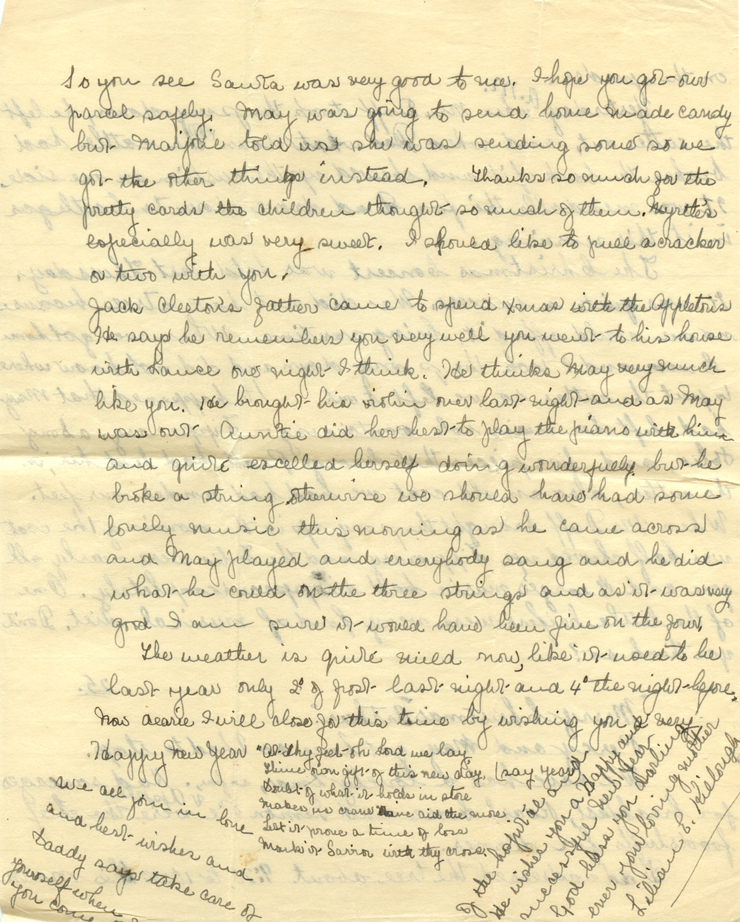 So you see Santa was very good to me. I hope you got our
parcel safely. May was going to send home made candy
but Marjorie told us she was sending some so we
got the other things instead. Thanks so much for the
pretty cards the children thought so much of them. Myrtle's
especially was very sweet. I should like to pull a cracker
or two with you.
Jack Cleeton's father came to spend Xmas with the Appletons
He says he remembers you very well you went to his house
with Lance one night I think. He thinks May very much
like you. He brought his violin over last night and as May
was out Auntie did her best to play the piano with him
and quite excelled herself doing wonderfully but he
broke a string otherwise we should have had some
lovely music this morning as he came across
and May played and everybody sang and he did
what he could on the three strings and as it was very
good I am sure it would have been fine on the four
The weather is quite mild now, like it used to be
last year only 2° of frost last night and 4° the night before.
Now dearie I will close for this time by wishing you a very
Happy New Year "At thy feet oh Lord we lay
Thine own gift of this new day, (say year)
Doubt of what it holds in store
Makes us crave thine aid the more.
Lest it prove a time of loss
Mark it Savior with thy cross.
We all join in love
and best wishes and
Daddy says take care of
yourself when
you come
of the hospital and
He wishes you a happy and
successful New Year
God bless you darling
ever your loving mother
Lilian E.